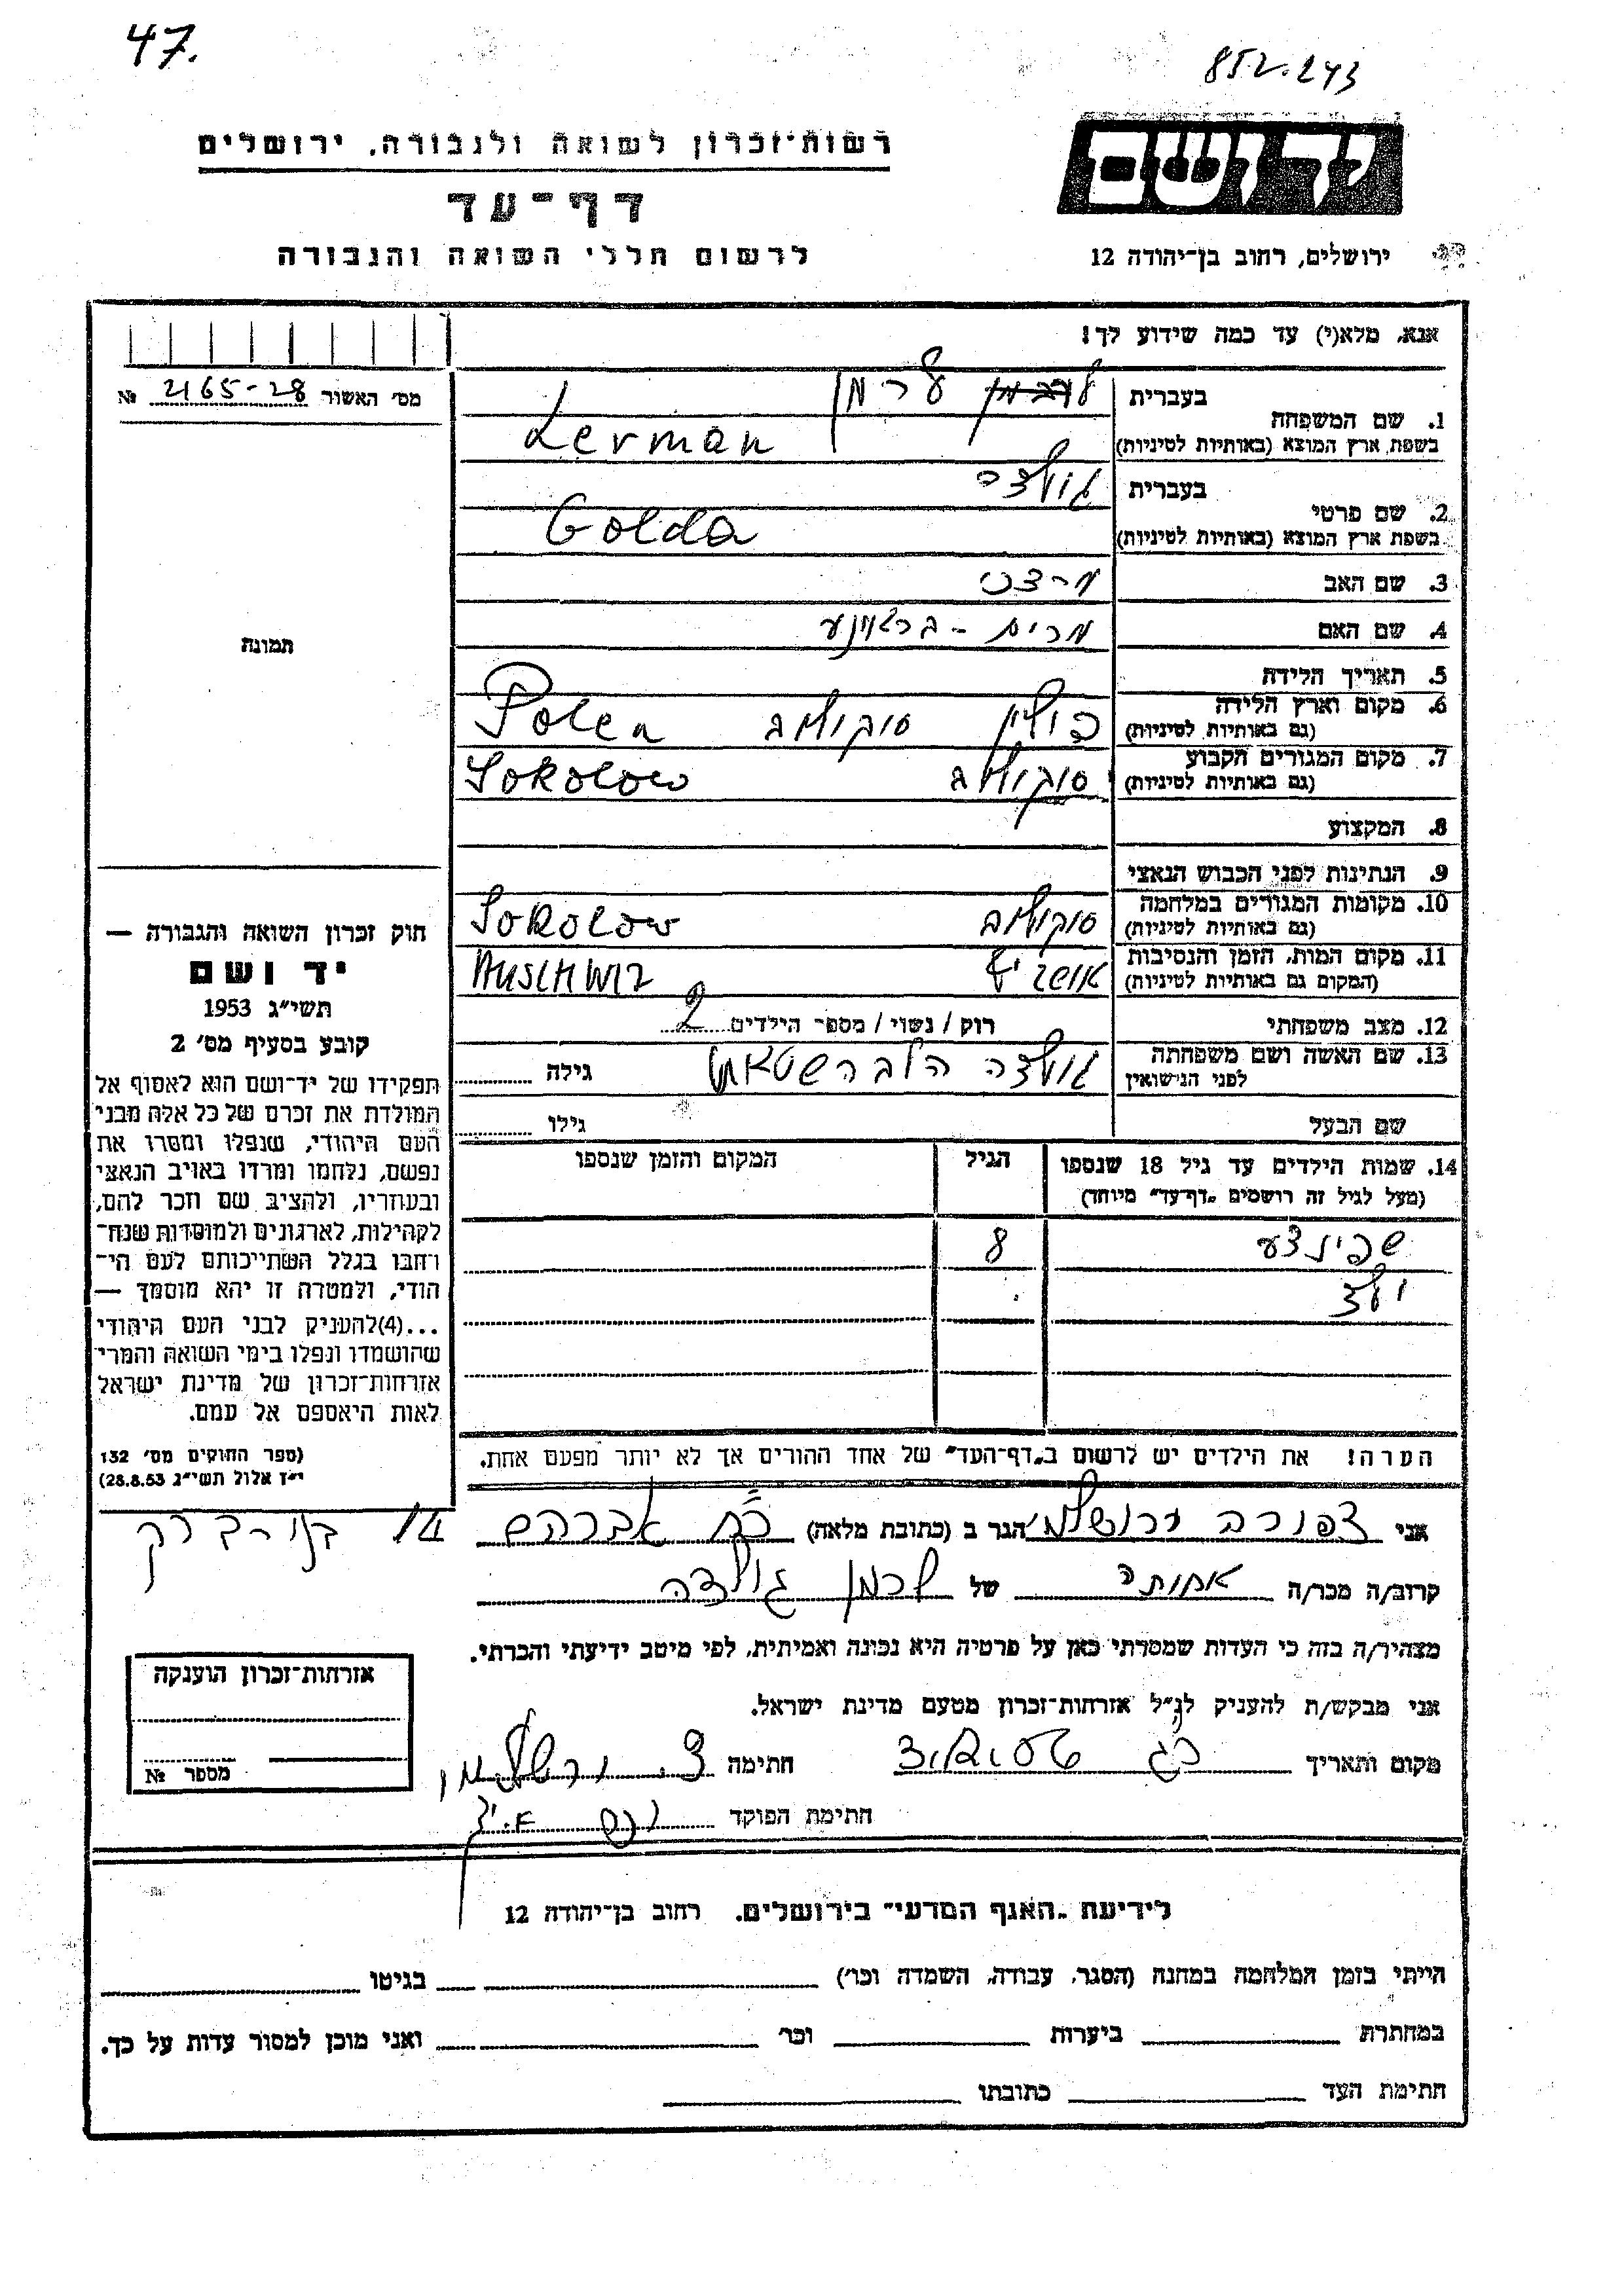 47.
852.243
רשות־זכרון לשואה ולגבורה, ירושלים
יד ושם
דף־עד
לרשום חללי השואה והגבורה
ירושלים, רחוב בן־יהודה 12
אנא, מלא(י) עד כמה שידוע לך!
מס׳ האשור 2165-28 №
1. שם המשפחה
בעברית לרמן
בשפת ארץ המוצא (באותיות לטיניות) Lerman
2. שם פרטי
בעברית גולדה
בשפת ארץ המוצא (באותיות לטיניות) Golda
3. שם האב מרדכי
4. שם האם מרים -
5. תאריך הלידה
6. מקום וארץ הלידה
(גם באותיות לטיניות) פולין סוקולוב Polen
7. מקום המגורים הקבוע
(גם באותיות לטיניות) סוקולוב Sokolow
8. המקצוע
9. הנתינות לפני הכבוש הנאצי
10. מקומות המגורים במלחמה
(גם באותיות לטיניות) סוקולוב Sokolow
11. מקום המות, הזמן והנסיבות
(המקום גם באותיות לטיניות) אושויץ AUSCHWIZ
12. מצב משפחתי רוק / נשוי / מספר הילדים 2
13. שם האשה ושם משפחתה
לפני הנישואין גולדה גילה
שם הבעל גילו
תמונה
14. שמות הילדים עד גיל 18 שנספו הגיל המקום והזמן שנספו
(מעל לגיל זה רושמים „דף־עד״ מיוחד)
שפינצע 8
ילד
הערה! את הילדים יש לרשום ב„דף־העד״ של אחד ההורים אך לא יותר מפעם אחת.
חוק זכרון השואה והגבורה —
יד ושם
תשי״ג 1953
קובע בסעיף מס׳ 2
תפקידו של יד־ושם הוא לאסוף אל
המולדת את זכרם של כל אלה מבני
העם היהודי, שנפלו ומסרו את
נפשם, נלחמו ומרדו באויב הנאצי
ובעוזריו, ולהציב שם וזכר להם,
לקהילות, לארגונים ולמוסדות שנח־
רחבו בגלל השתייכותם לעם הי־
הודי, ולמטרה זו יהא מוסמך —
...(4)להעניק לבני העם היהודי
שהושמדו ונפלו בימי השואה והמרי
אזרחות־זכרון של מדינת ישראל
לאות היאספם אל עמם.
(ספר החוקים מס׳ 132
י״ז אלול תשי״ג 28.8.53)
אני צפורה ירושלמי הגר ב (כתובת מלאה) אברהם 14
קרוב/ה מכר/ה אחותה של לרמן גולדה
מצהיר/ה בזה כי העדות שמסרתי כאן על פרטיה היא נכונה ואמיתית, לפי מיטב ידיעתי והכרתי.
אני מבקש/ת להעניק לנ״ל אזרחות־זכרון מטעם מדינת ישראל.
מקום ותאריך חתימה צ. ירושלמי
חתימת הפוקד
אזרחות־זכרון הוענקה
מספר №
לידיעת „האגף המדעי״ בירושלים. רחוב בן־יהודה 12
הייתי בזמן המלחמה במחנה (הסגר, עבודה, השמדה וכו׳) בגיטו
במחתרת ביערות וכו׳ ואני מוכן למסור עדות על כך.
חתימת העד כתובתו